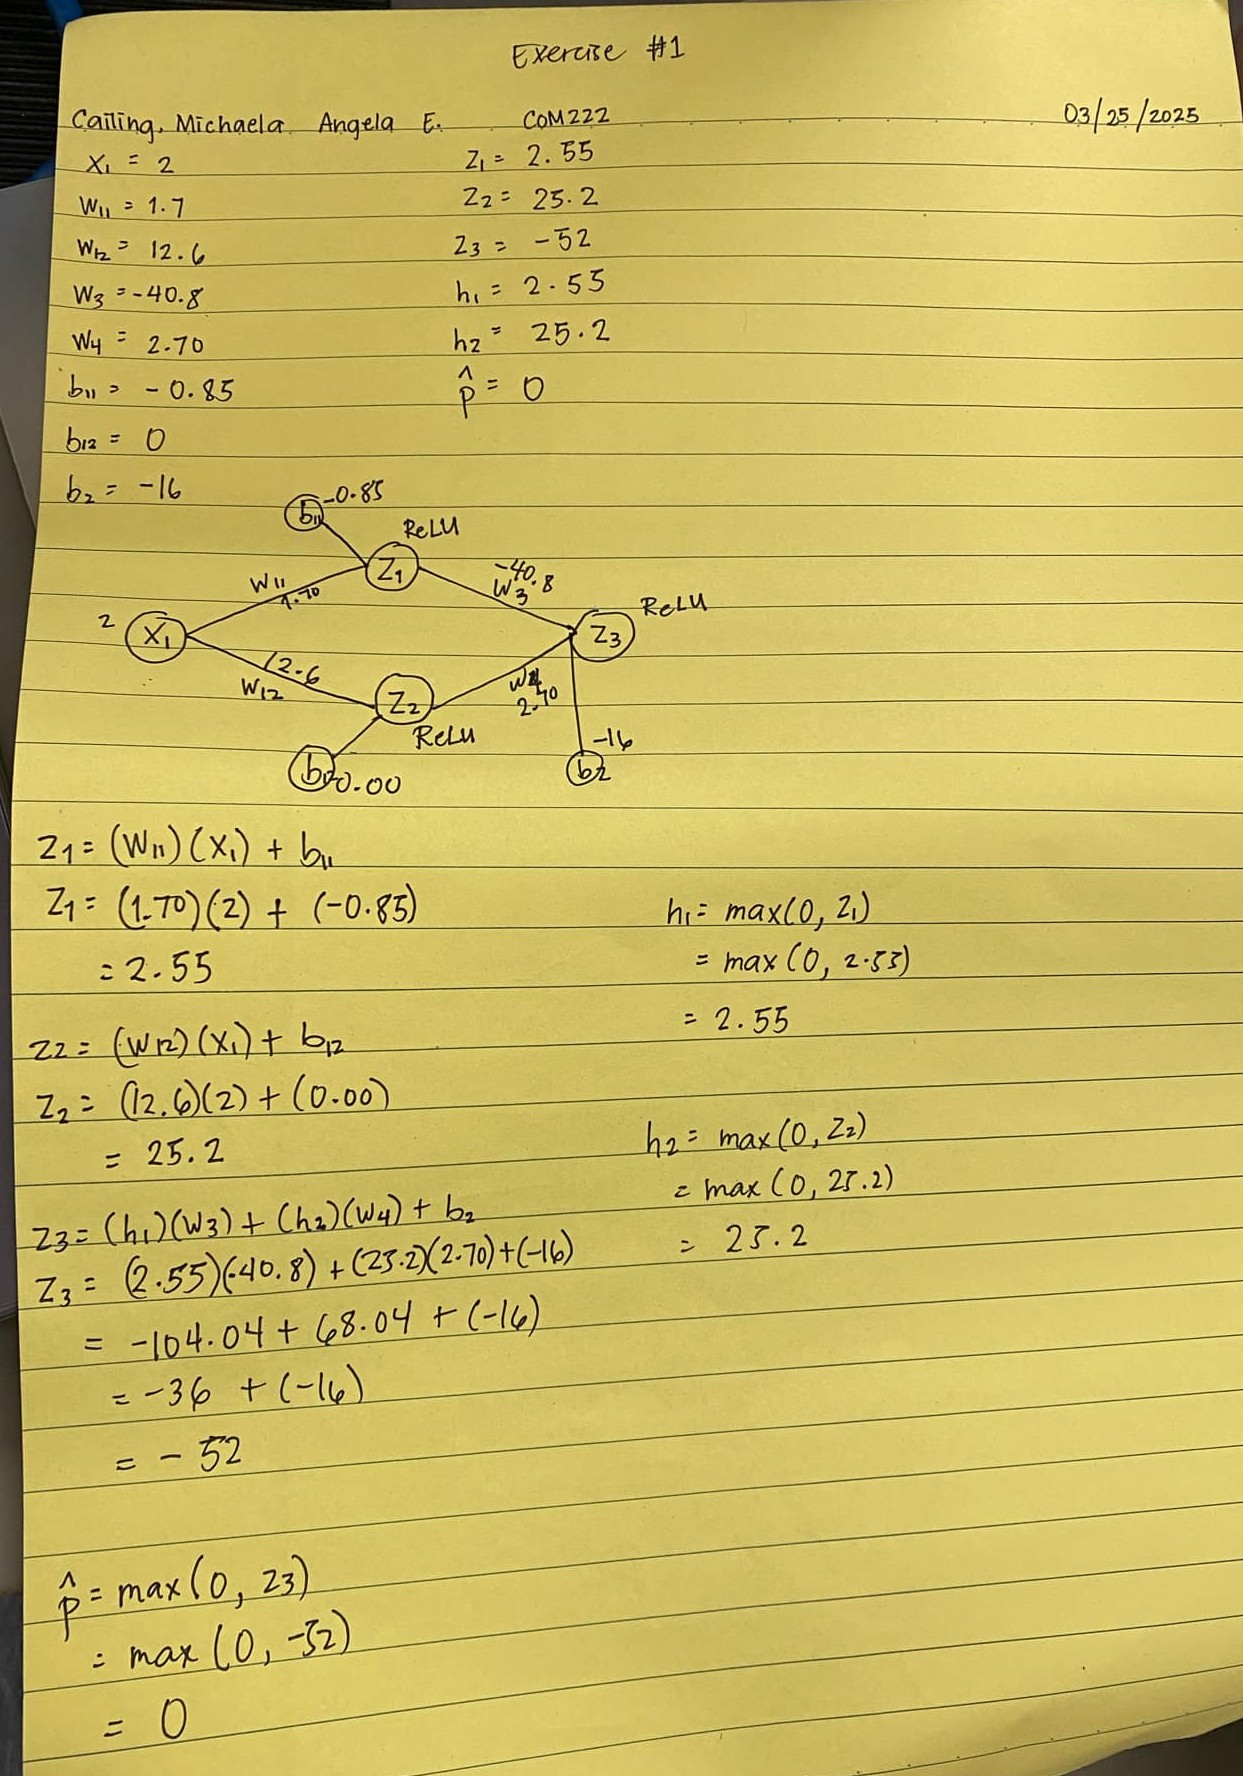 Exercise #1
Cailing, Michaela Angela E. COM222 03/25/2025
X₁ = 2
W₁₁ = 1.7
W₁₂ = 12.6
W₃ = -40.8
W₄ = 2.70
b₁₁ = -0.85
b₁₂ = 0
b₂ = -16
Z₁ = 2.55
Z₂ = 25.2
Z₃ = -52
h₁ = 2.55
h₂ = 25.2
p̂ = 0
b₁₁ -0.85
ReLU
Z₁
W₁₁
1.70
-40.8
W₃
2 X₁
Z₃ ReLU
12.6
W₁₂
Z₂
ReLU
W₄
2.70
b₁₂ 0.00
-16
b₂
Z₁ = (W₁₁)(X₁) + b₁₁
Z₁ = (1.70)(2) + (-0.85)
= 2.55
h₁ = max(0, Z₁)
= max(0, 2.55)
= 2.55
Z₂ = (W₁₂)(X₁) + b₁₂
Z₂ = (12.6)(2) + (0.00)
= 25.2
h₂ = max(0, Z₂)
= max(0, 25.2)
= 25.2
Z₃ = (h₁)(W₃) + (h₂)(W₄) + b₂
Z₃ = (2.55)(-40.8) + (25.2)(2.70) + (-16)
= -104.04 + 68.04 + (-16)
= -36 + (-16)
= -52
p̂ = max(0, Z₃)
= max(0, -52)
= 0